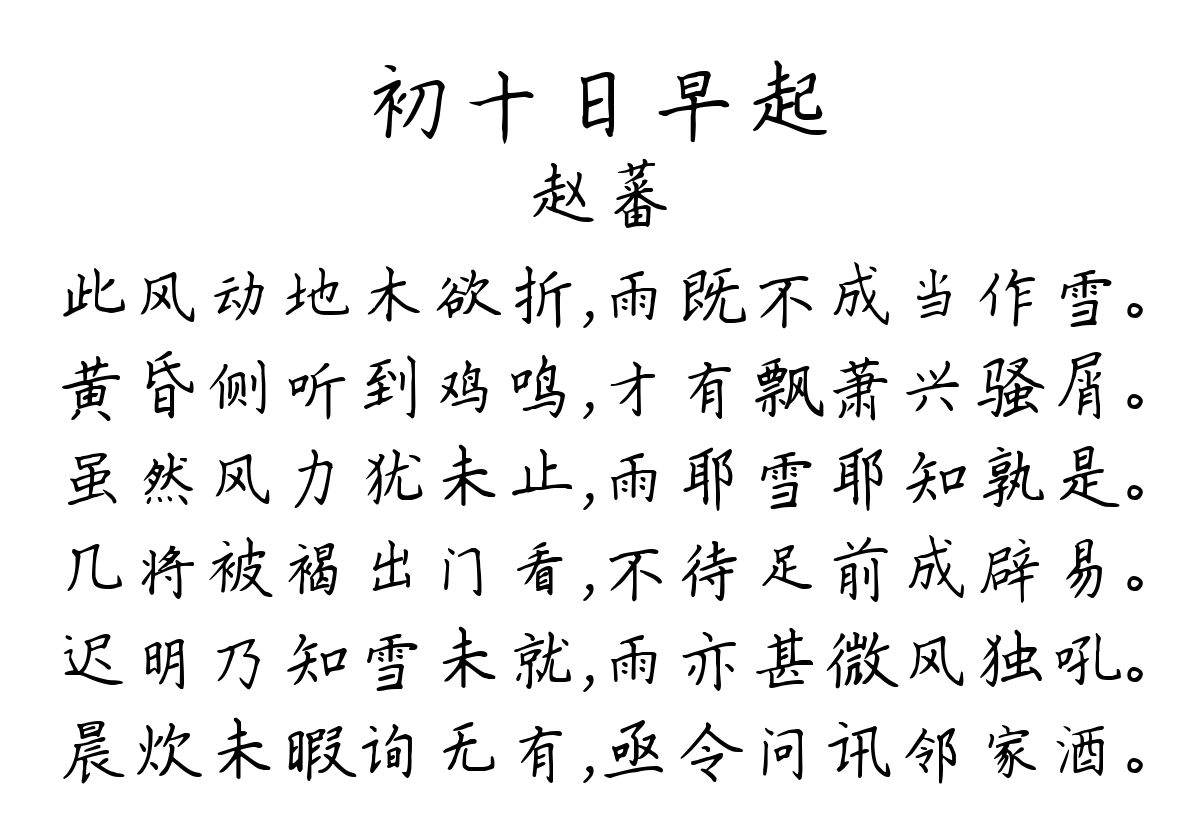 初十日早起
赵蕃
此风动地木欲折,雨既不成当作雪。
黄昏侧听到鸡鸣,才有飘萧兴骚屑。
虽然风力犹未止,雨耶雪耶知孰是。
几将被褐出门看,不待足前成辟易。
迟明乃知雪未就,雨亦甚微风独吼。
晨炊未暇询无有,亟令问讯邻家酒。